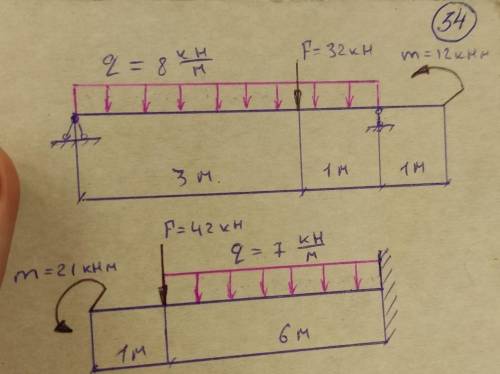 34
q = 8 кН/м
F=32кН
m=12кНм
3 м.
1м
1м
F=42кН
q = 7 кН/м
m=21кНм
1м
6м